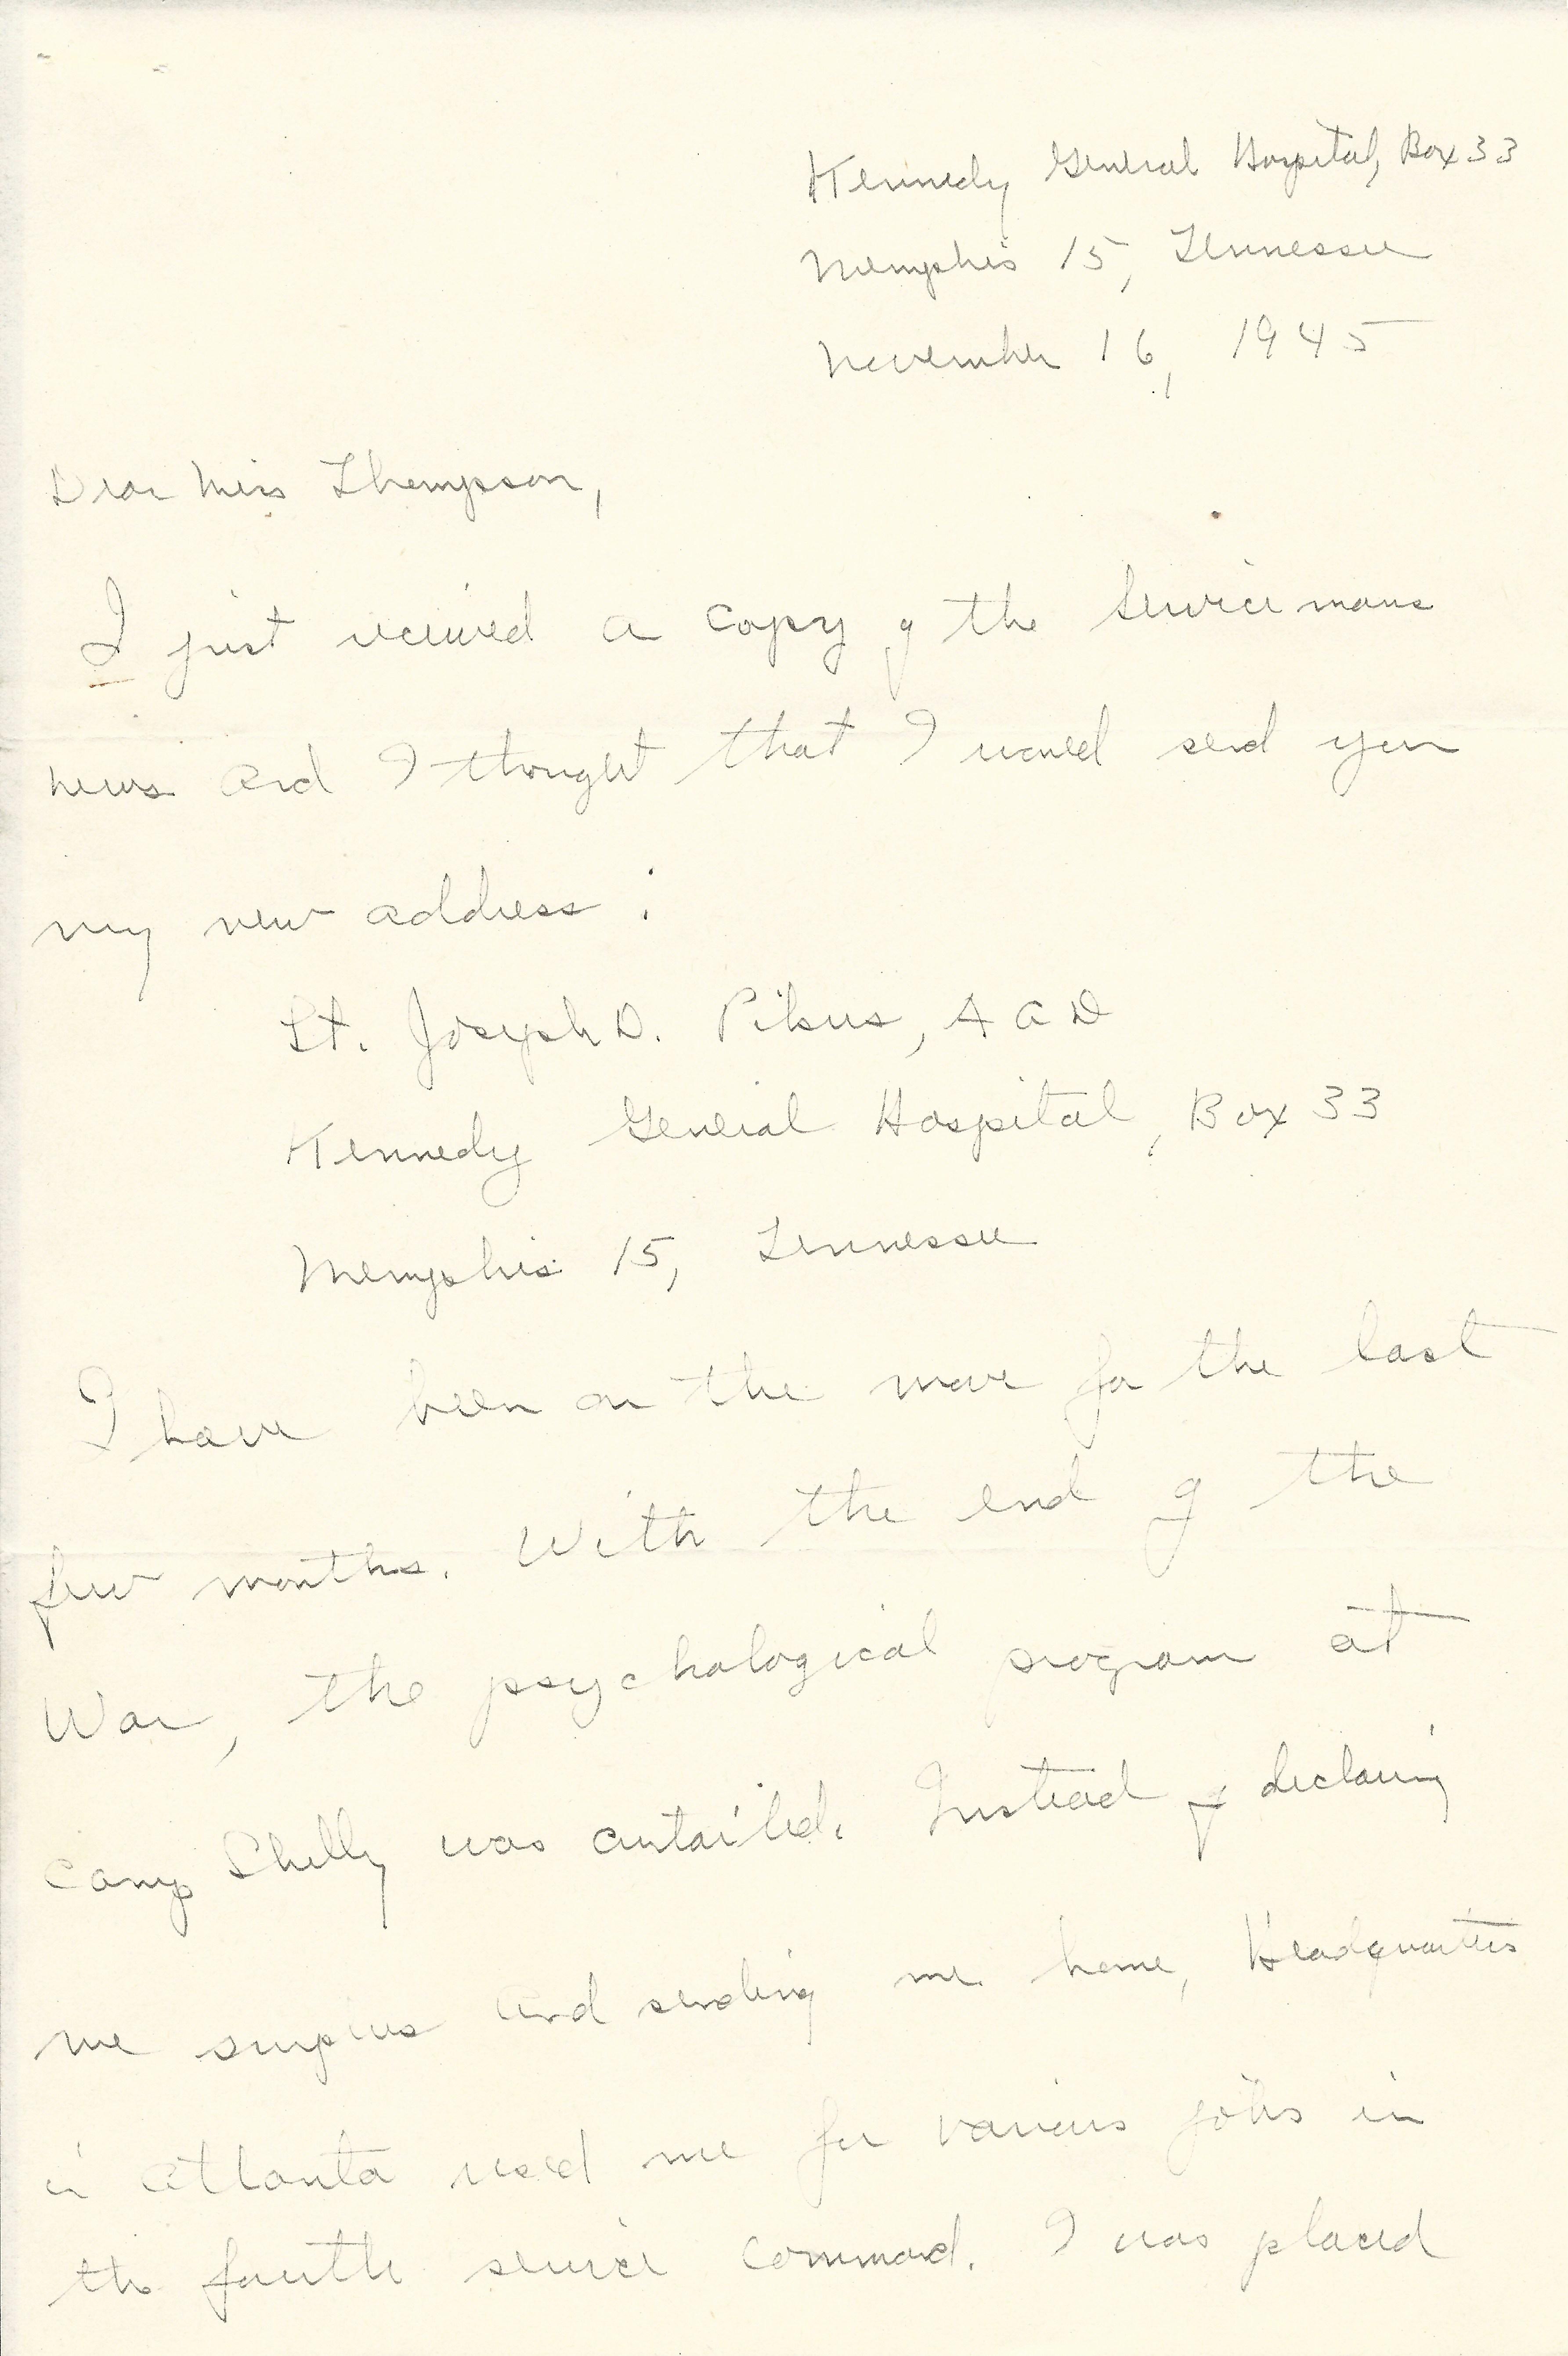 Kennedy General Hospital, Box 33
Memphis 15, Tennessee
November 16, 1945
Dear Miss Thompson,
I just received a copy of the Servicemans
news and I thought that I would send you
my new address :
Lt. Joseph D. Pikus, A G D
Kennedy General Hospital, Box 33
Memphis 15, Tennessee
I have been on the move for the last
few months. With the end of the
War, the psychological program at
Camp Shelby was curtailed. Instead of declaring
me surplus and sending me home, Headquarters
in Atlanta used me for various jobs in
the fourth service command. I was placed